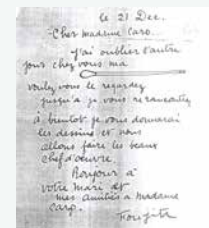 le 21 Dec.
Cher madame Caro.
J'ai oublier l'autre
jour chez vous ma
voulez vous le regardez
jusqu'à je vous rerancontrez
à bientot je vous donnerai
les dessins et nous
allons faire les beaux
chef d'oeuvre.
Bonjour à
votre mari et
mes amitiés à madame
Caro.
Foujita